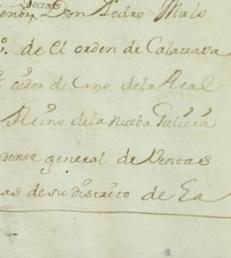 Secreto
Señor Don Pedro Malo
de el orden de Calatrava
oidor de Cano dela Real
Reino dela nueba Galicia
dente general de Ventas
as de su distrito de